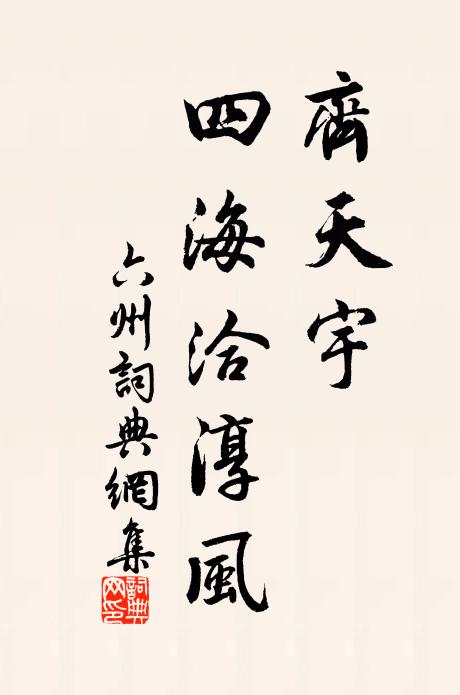 齊天宇
四海洽淳風
六州詞典網集
詞典
网印